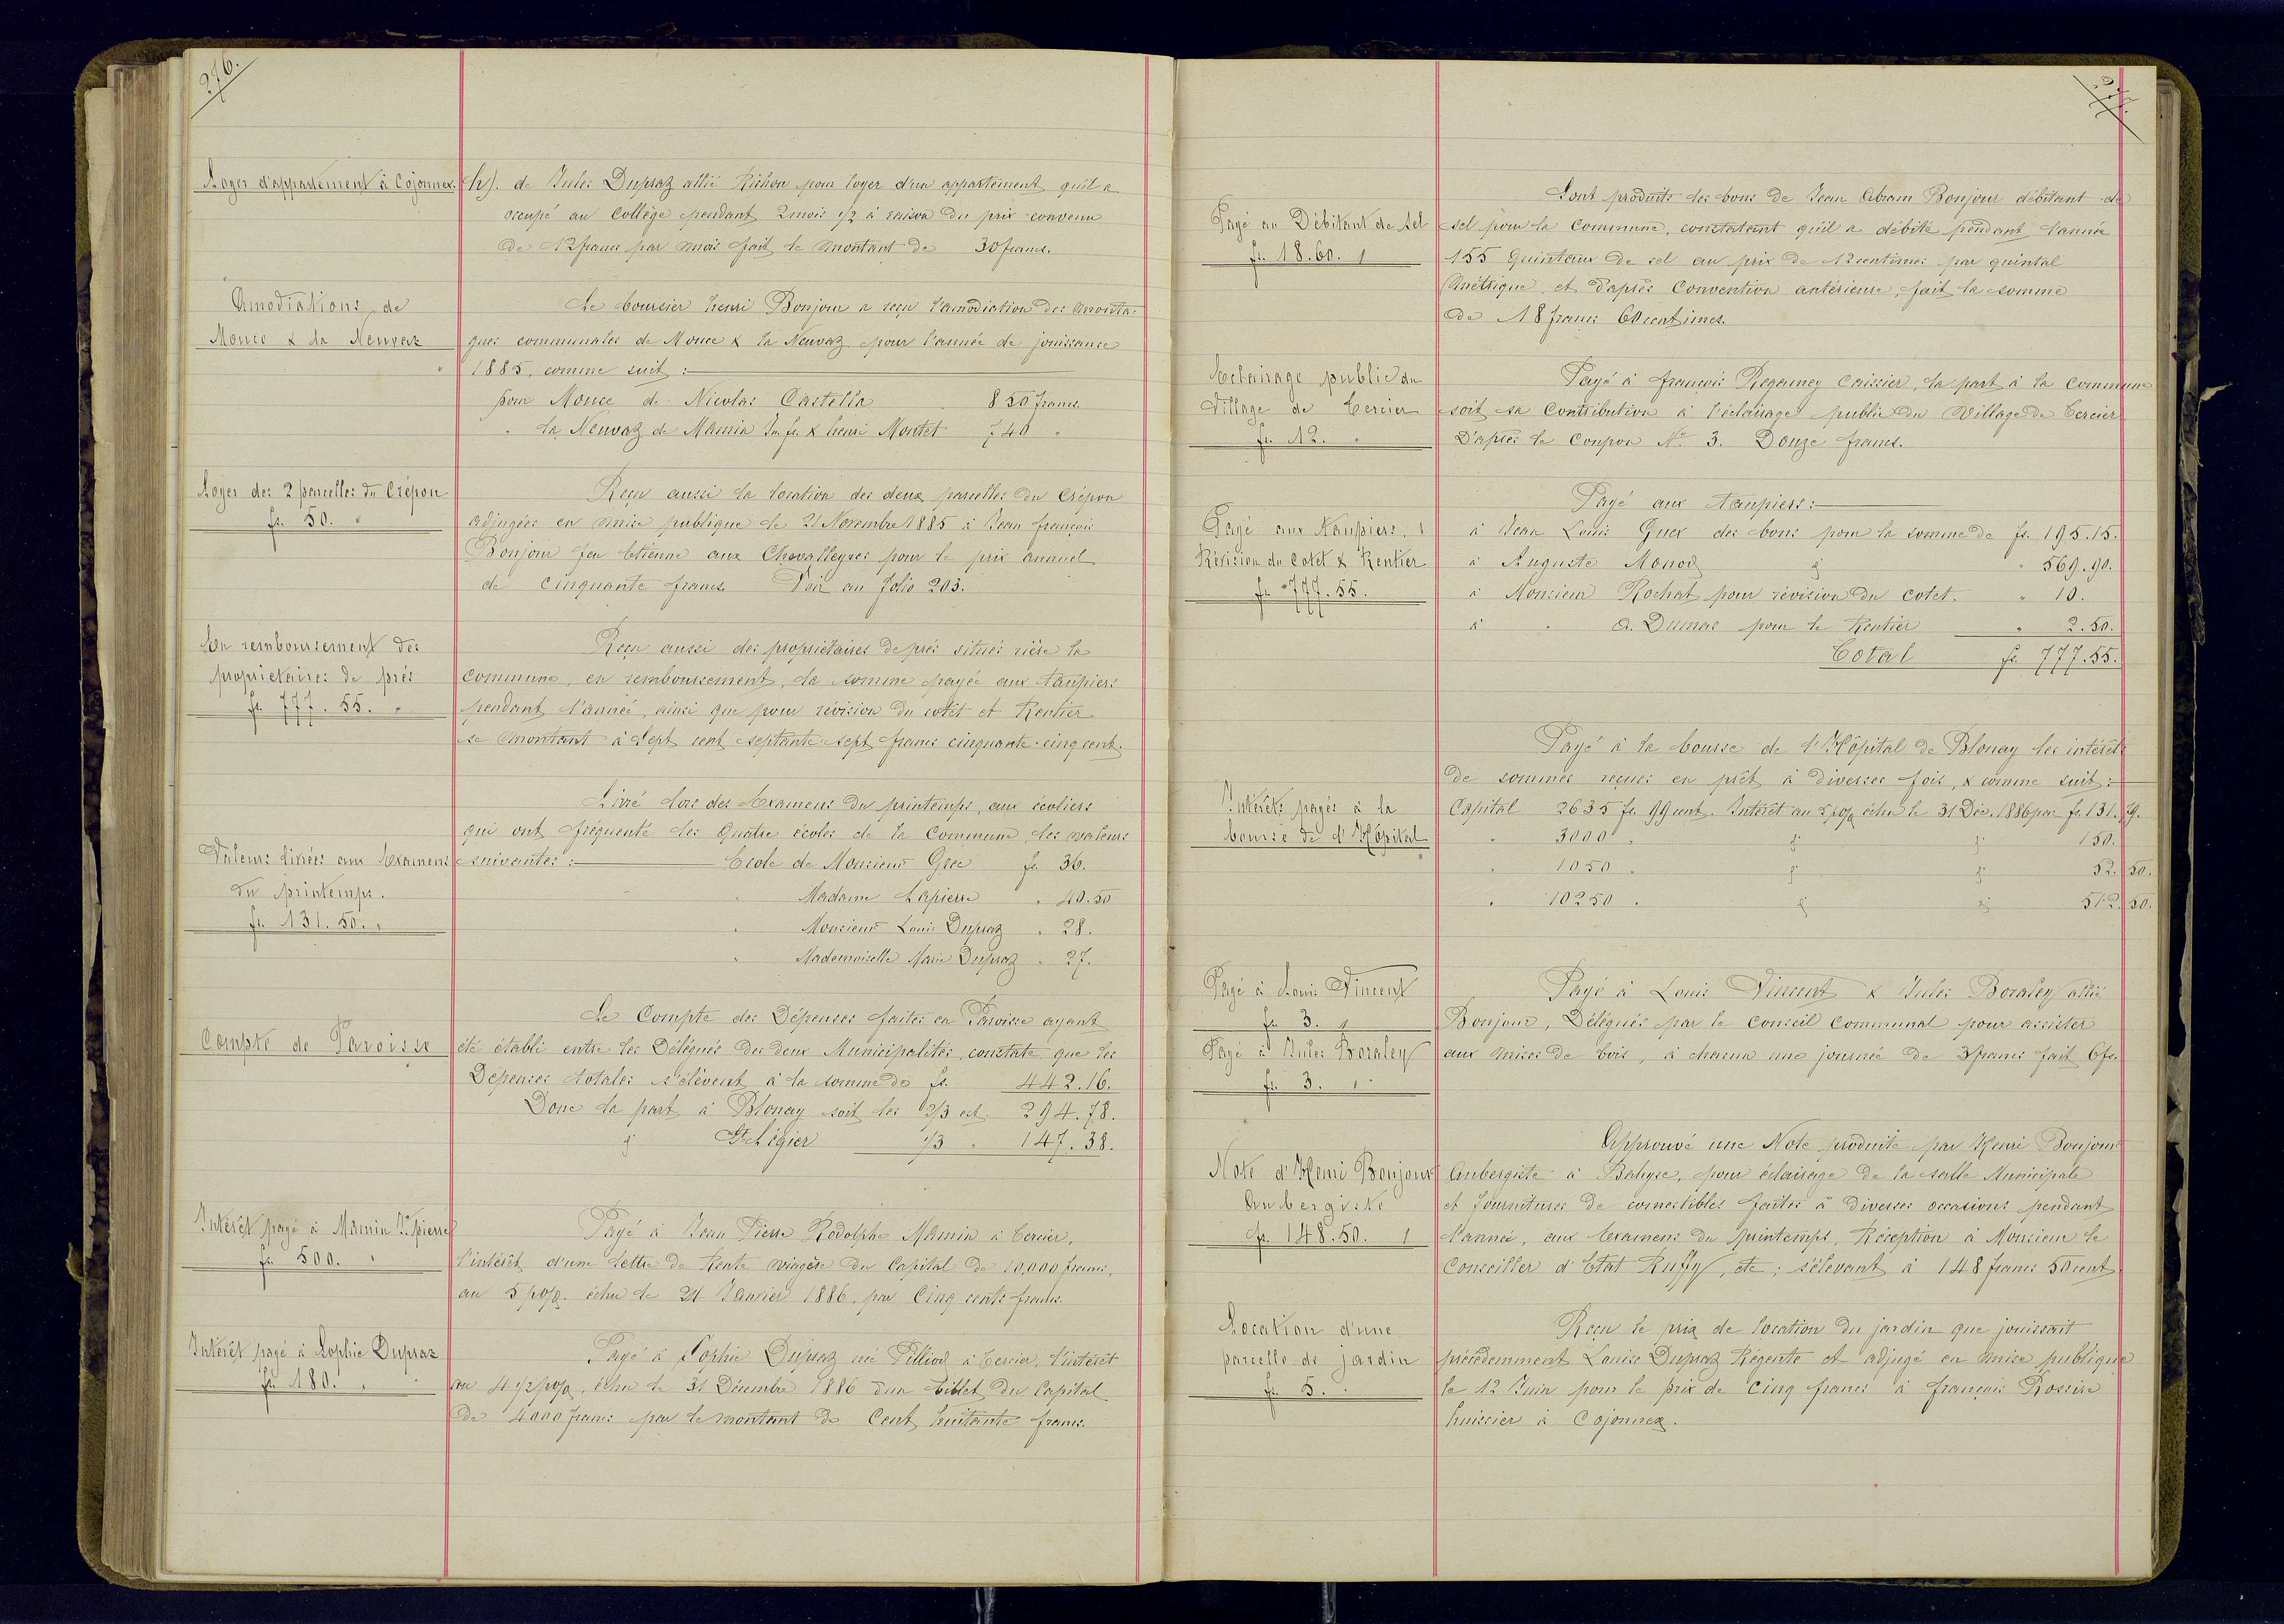 276.
Loyer d'appartement à Cojonnex.
h). de Jules Dupraz allié Pichon pour loyer d'un appartement qu'il a
occupé au Collège pendant 2 mois 1/2 à raison du prix convenu
de 12 francs par mois fait le montant de 30 francs.
Amodiations de
Mouce & la Neuvaz
Le boursier henri Bonjour a reçu l'amodiation des monta-
gnes communales de Mouce & la Neuvaz pour l'année de jouissance
1885, comme suit :
pour Mouce de Nicolas Castella 850 francs.
" la Neuvaz de Mamin Jn. fs. & henri Montet 740 "
Loyer des 2 parcelles du Crépon
fr. 50. "
Reçu aussi la location des deux parcelles du Crépon
adjugées en mise publique le 21 Novembre 1885 à Jean françois
Bonjour feu Etienne aux Chevalleyres pour le prix annuel
de cinquante francs. Voir au folio 203.
En remboursement des
propriétaires de prés
fr. 777. 55. "
Reçu aussi des propriétaires de prés situés rière la
commune, en remboursement, la somme payée aux taupiers
pendant l'année, ainsi que pour révision du cotet et Rentier
se montant à Sept cent septante-sept francs cinquante-cinq cent.
Valeurs livrées aux Examens
du printemps.
fr. 131. 50. "
Livré lors des Examens du printemps, aux écoliers
qui ont fréquenté les quatre écoles de la Commune, les valeurs
suivantes : Ecole de Monsieur Gree fr. 36.
" Madame Lapierre " 40.50
" Monsieur Louis Dupraz " 28.
" Mademoiselle Marie Dupraz " 27.
Compte de Paroisse
Le Compte des Dépenses faites en Paroisse ayant
été établi entre les Délégués des deux Municipalités, constate que les
Dépenses totales s'élèvent à la somme de fr. 442.16.
Donc la part à Blonay soit les 2/3 est 294.78.
" St Légier 1/3 " 147.38.
Intérêt payé à Mamin Jn. pierre
fr. 500. "
Payé à Jean Pierre Rodolphe Mamin à Tercier,
l'intérêt d'une lettre de Rente viagère du Capital de 10,000 francs,
au 5 p% échu le 24 Janvier 1886. par Cinq cents francs.
Intérêt payé à Sophie Dupraz
fr. 180. "
Payé à Sophie Dupraz née Pilliod à Tercier, l'intérêt
au 4 1/2 p%, échu le 31 Décembre 1886 d'un billet du Capital
de 4000 francs par le montant de Cent huitante francs.
277.
Payé au Débitant de sel
fr. 18.60. "
Sont produits des bons de Jean Abram Bonjour débitant de
sel pour la Commune, constatant qu'il a débité pendant l'année
155 Quintaux de sel au prix de 12 centimes par quintal
métrique, et d'après Convention antérieure, fait la somme
de 18 francs 60 centimes.
Eclairage public du
Village de Tercier
fr. 12. "
Payé à françois Regamey Caissier, la part à la Commune
soit sa Contribution à l'éclairage public du Village de Tercier
D'après le Coupon No 3. Douze francs.
Payé aux Taupiers, "
Révision du Cotet & Rentier
fr. 777.55.
Payé aux taupiers :
à Jean Louis Guex des bons pour la somme de fr. 195.15.
à Auguste Monod " " 569.90.
à Monsieur Rochat pour révision du cotet. " 10.
à " A. Dumas pour le Rentier " 2.50.
Total fr. 777.55.
Intérêts payés à la
bourse de l'Hôpital
Payé à la bourse de l'Hôpital de Blonay les intérêts
de sommes reçues en prêt à diverses fois, & comme suit :
Capital 2635 fr. 99 cent. Intérêt au 5 p% échu le 31 Déc. 1886 par fr. 131. 79.
" 3000 " " " 150.
" 1050 " " " 52. 50.
" 10250 " " " 512. 50.
Payé à Louis Vincent
fr. 3. "
Payé à Jules Boraley
fr. 3. "
Payé à Louis Vincent & Jules Boraley allié
Bonjour, Délégués par le Conseil Communal pour assister
aux mises de bois, à chacun une journée de 3 francs fait 6 fr.
Note d'Henri Bonjour
Aubergiste
fr. 148.50. "
Approuvé une Note produite par Henri Bonjour
Aubergiste à Bahyse, pour éclairage de la salle Municipale
et fournitures de comestibles faites à diverses occasions pendant
l'année, aux Examens du printemps, Réception à Monsieur le
Conseiller d'Etat Ruffy, etc ; s'élevant à 148 francs 50 cent.
Location d'une
parcelle de jardin
fr. 5. "
Reçu le prix de location du jardin que jouissait
précédemment Louise Dupraz Régente et adjugé en mise publique
le 12 Juin pour le prix de Cinq francs à françois Rossire
huissier à Cojonnex.